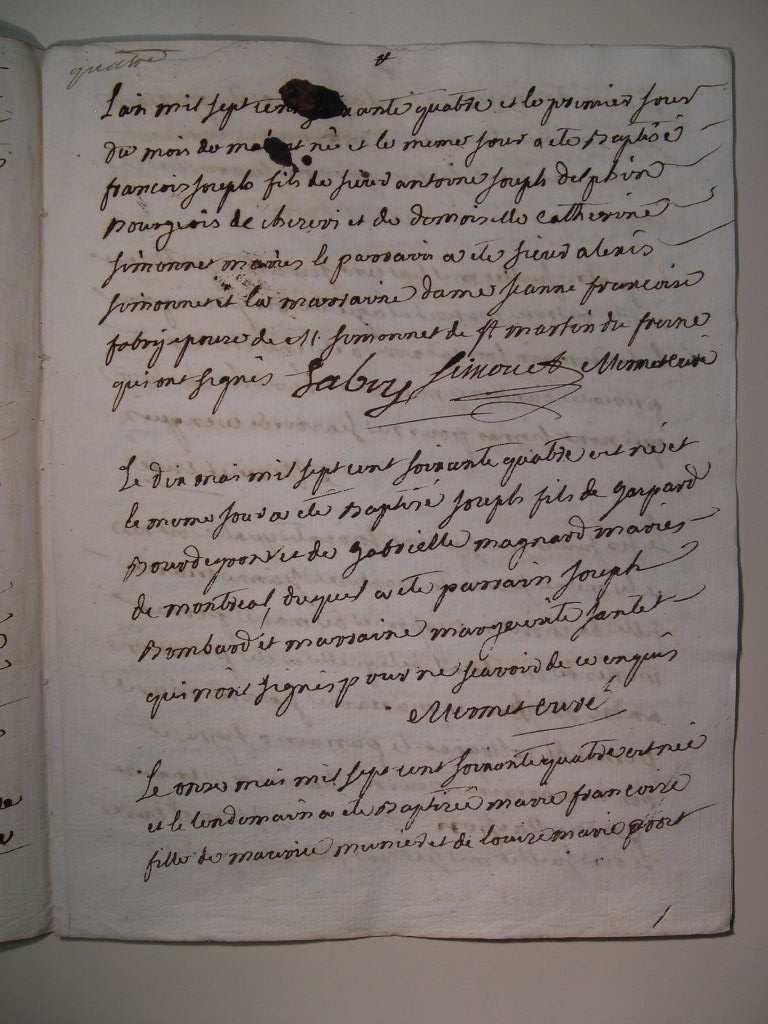 quatre
L'an mil sept cent soixante quatre et le premier jour
du mois de mai est né et le meme jour a ete Baptisé
francois joseph fils de sieur antoine joseph delphin
Bourgeois de et de demoiselle Catherine
simonnet mariés le parrain a ete sieur alexis
simonnet et la marraine dame jeanne francoise
fabry epouse de M. simonnet de St martin du frene
qui ont signés fabry Simonet Mermet curé
Le dix mai mil sept cent soixante quatre est né et
le meme jour a ete Baptisé joseph fils de gaspard
et de gabrielle magnard mariés
de montreal, duquel a ete parrain joseph
Bombard et marraine marguerite
qui n'ont signés pour ne scavoir de ce enquis
Mermet curé
Le onze mai mil sept cent soixante quatre est née
et le lendemain a ete Baptisée marie francoise
fille de maurice munier et de louise marie